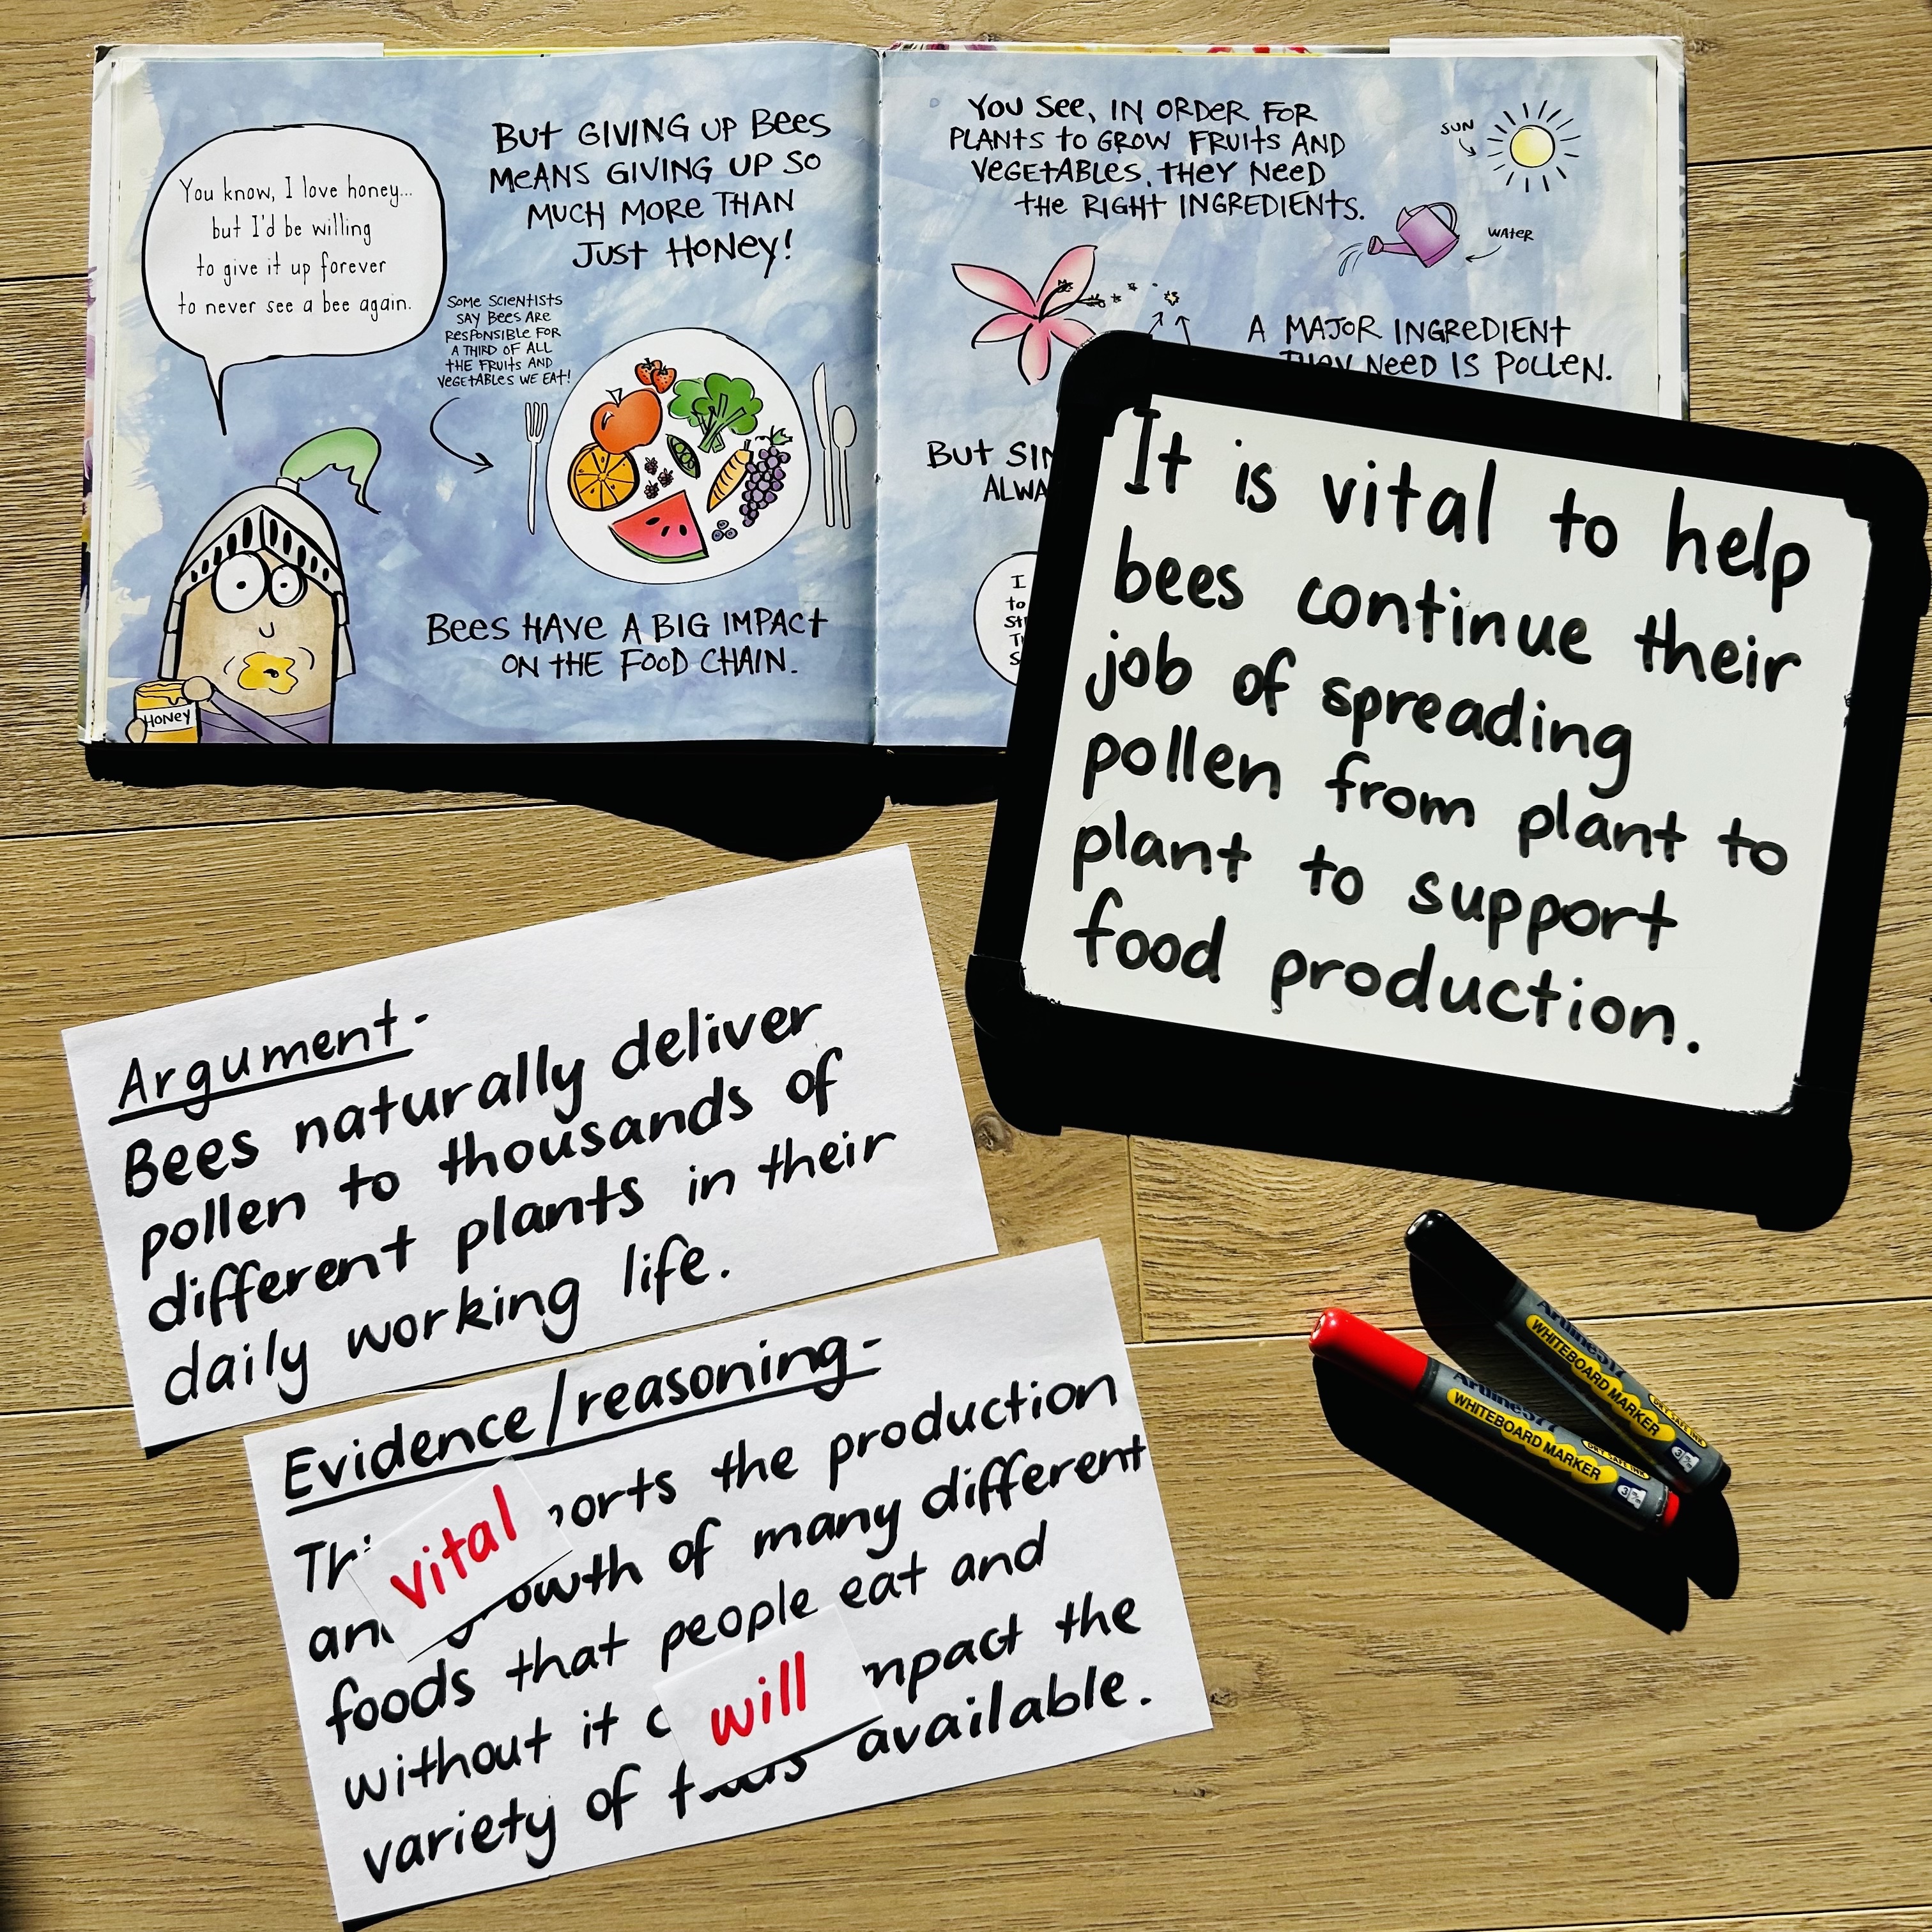 You know, I love honey...
but I'd be willing
to give it up forever
to never see a bee again.
BUT GIVING UP BEES
MEANS GIVING UP SO
MUCH MORE THAN
JUST HONEY!
SOME SCIENTISTS
SAY BEES ARE
RESPONSIBLE FOR
A THIRD OF ALL
THE FRUITS AND
VEGETABLES WE EAT!
HONEY
BEES HAVE A BIG IMPACT
ON THE FOOD CHAIN.
YOU SEE, IN ORDER FOR
PLANTS TO GROW FRUITS AND
VEGETABLES, THEY NEED
THE RIGHT INGREDIENTS.
SUN
WATER
A MAJOR INGREDIENT
THEY NEED IS POLLEN.
BUT
I
to
It is vital to help
bees continue their
job of spreading
pollen from plant to
plant to support
food production.
Argument-
Bees naturally deliver
pollen to thousands of
different plants in their
daily working life.
Evidence/reasoning-
vital the production
of many different
foods that people eat and
without it will the
variety of available.
Artline 577
WHITEBOARD MARKER
DRY SAFE INK
Artline 577
WHITEBOARD MARKER
DRY SAFE INK